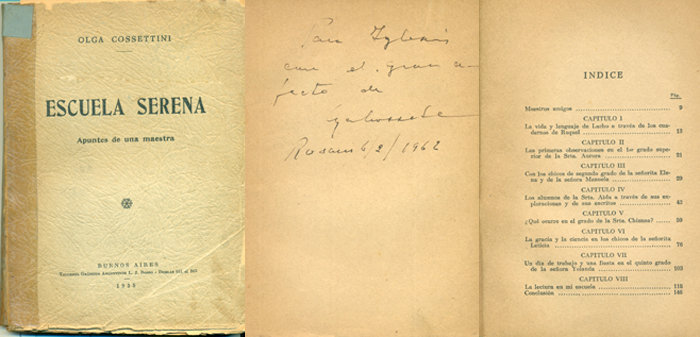 OLGA COSSETTINI
ESCUELA SERENA
Apuntes de una maestra
BUENOS AIRES
Talleres Gráficos Argentinos L. J. Rosso
1935
Para Iglesias
con el gran a-
fecto de
1962
INDICE
Pág.
Maestros amigos 9
CAPITULO I
La vida y lenguaje de Lucho a través de los cua-
dernos de Raquel 13
CAPITULO II
Las primeras observaciones en el 1er grado supe-
rior de la Srta. Aurora 21
CAPITULO III
Con los chicos de segundo grado de la señorita Ele-
na y de la señora Manuela 29
CAPITULO IV
Los alumnos de la Srta. Aída a través de sus ex-
ploraciones y de sus escritos 43
CAPITULO V
¿Qué ocurre en el grado de la Srta. Chizzas? 59
CAPITULO VI
La gracia y la ciencia en los chicos de la señorita
Leticia 79
CAPITULO VII
Un día de trabajo y una fiesta en el quinto grado
de la señora Yolanda 103
CAPITULO VIII
La lectura en mi escuela 118
Conclusión 140